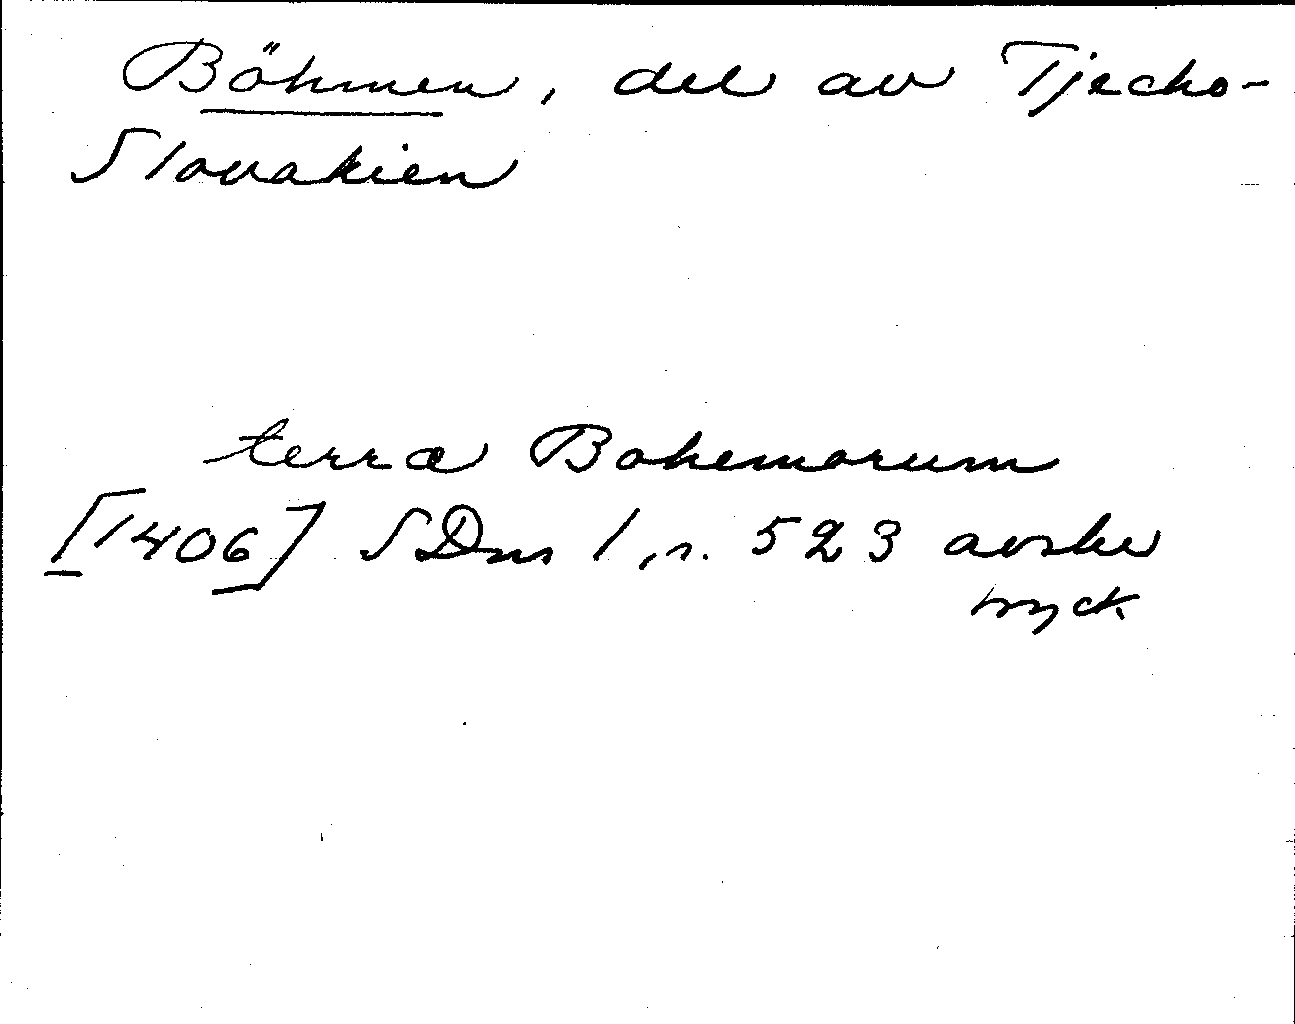 Böhmen, del av Tjecko-
Slovakien
terra Bohemorum
[1406] SDns 1, s. 523 avskr
tryck